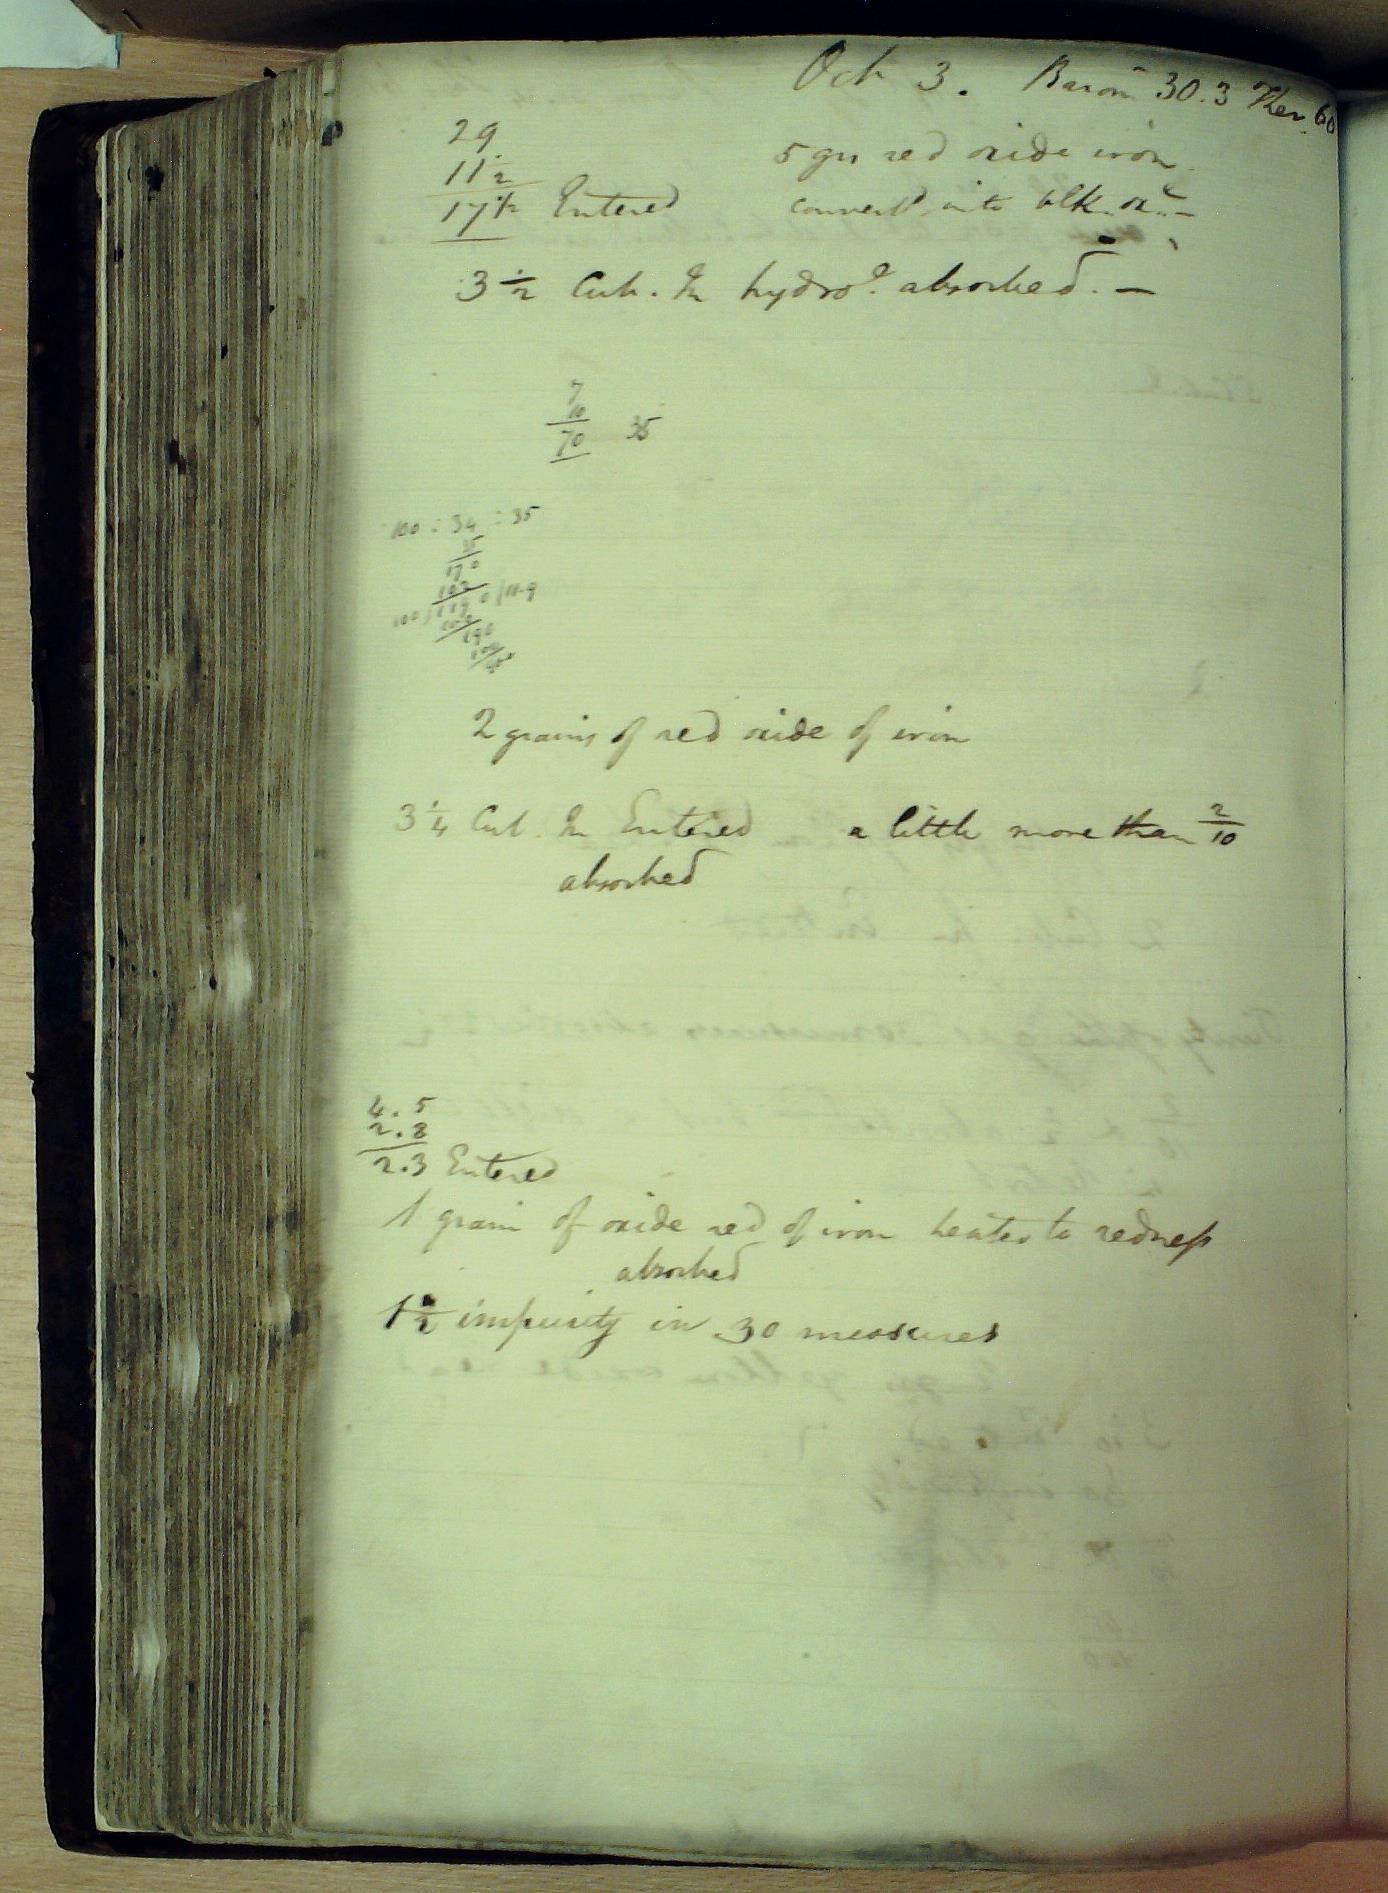 Oct 3. Barom 30.3 Ther. 60
29
11 1/2
17 1/2 Entered
5 grs red oxide iron
convertd into blk. ox. -
3 1/2 Cub. In hydro. absorbed. —
7
10
70 35
100 : 34 : 35
35
170
102
100) 1190 (11.9
100
190
100
2 grains of red oxide of iron
3 1/4 Cub. In Entered a little more than 2/10
absorbed
4.5
2.8
2.3 Entered
1 grain of oxide red of iron heated to redness
absorbed
1 1/2 impurity in 30 measures